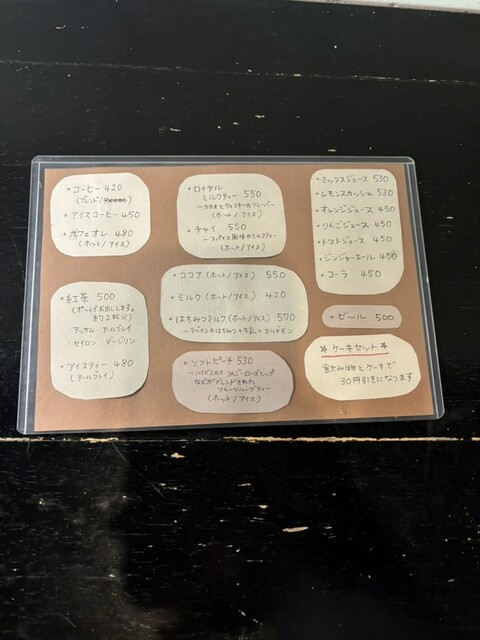 ・コーヒー 420
(ブレンド/
・アイスコーヒー 450
・カフェオレ 480
(ホット/アイス)
・紅茶 500
(ポットでお出しします。
約2杯分)
アッサム・アールグレイ
・セイロン・ダージリン
・アイスティー 480
(アールグレイ)
・ロイヤル
ミルクティー 550
(ホット/アイス)
・チャイ 550
〜スパイス風味のミルクティー〜
(ホット/アイス)
・ココア (ホット/アイス) 550
・ミルク (ホット/アイス) 420
・はちみつミルク (ホット/アイス) 570
のはちみつ+牛乳+カルダモン
・ソフトピーチ 530
〜ハイビスカス・リンゴ・ローズヒップ
などがブレンドされた
フルーツハーブティー
(ホット/アイス)
・ミックスジュース 530
・レモンスカッシュ 530
・オレンジジュース 450
・りんごジュース 450
・トマトジュース 450
・ジンジャーエール 450
・コーラ 450
・ビール 500
☆ ケーキセット ☆
飲み物とケーキで
30円引きになります